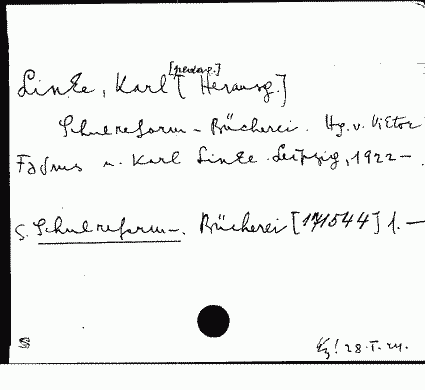 [pädag.]
Linke, Karl [Herausg.]
Schulreform-Bücherei. Hg. v. Viktor
Fadrus u. Karl Linke. Leipzig, 1922-.
s. Schulreform-. Bücherei [171544] 1.-
28.I.24.